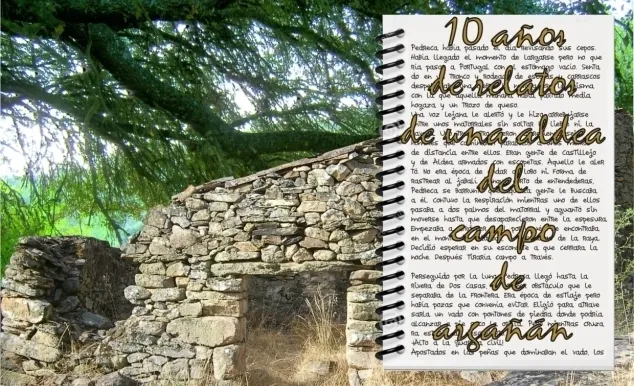 10 años
de relatos
de una aldea
del
campo
de
argañán
Pedreca había pasado el día revisando sus cepos.
Había llegado el momento de largarse pero no que
ría pasar a Portugal con el estómago vacío. Senta
do en tronco y rodeado de y carrascos
con la que aquella media
hogaza, y un trozo de queso.
Una voz lejana le alertó y le hizo
entre unos matorrales sin soltar ni la
de distancia entre ellos. Eran gente de Castillejo
y de Aldea armados con escopetas. Aquello le aler
tó. No era época de ni forma de
rastrear al jabalí de entendederas.
Pedreca se gente le buscaba
a él. Contuvo la respiración mientras uno de ellos
pasaba a dos palmos del matorral y aguantó sin
moverse hasta que desaparecieron entre la espesura.
Empezaba a encontraba
en el momento de la raya.
Decidió esperar en su a que cerrara la
noche. Después tiraría campo a través.
Perseguido por la luna, llegó hasta la
rivera de Dos Casas, obstáculo que le
separaba de la frontera. Era época de estiaje pero
había pozas que convenía evitar. Eligió para atrave
sarla un vado con pontones de piedra donde podría
alcanzar mientras cruza
¡Alto a la civil!
Apostados en las peñas que dominaban el vado, los